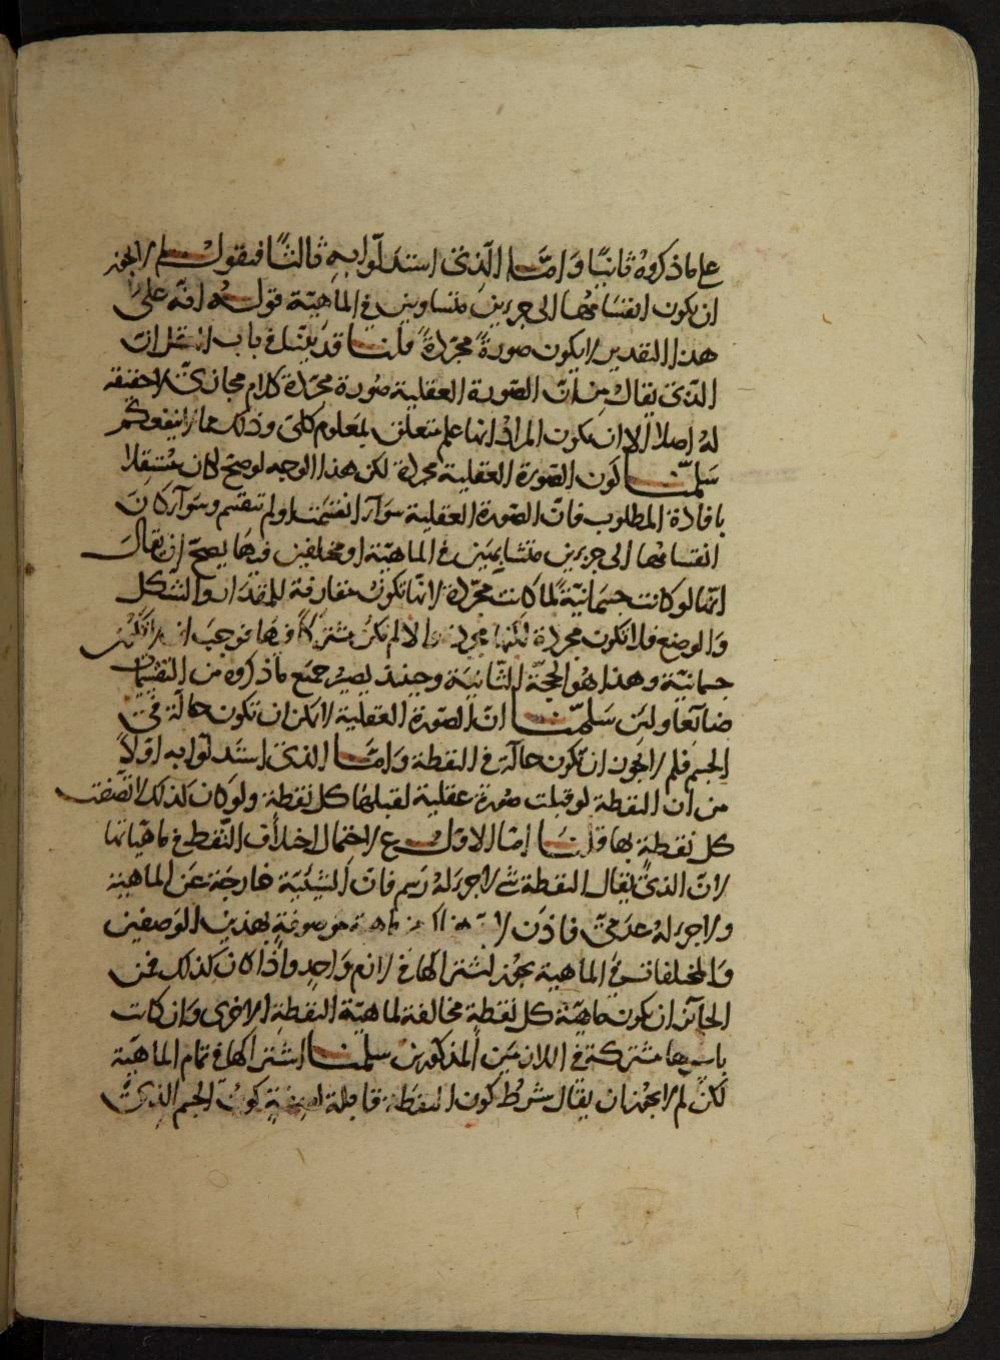 على ما ذكروه ثانيًا وَامّا الّذِى استدلّوا بهِ ثالثًا فنقول لم لا يجوز
ان يكون انقسامها الى جزءين متساويين فى الماهيّة قوله انّه على
هذا التقدير لا يكون صورةً مجرّدةً قلنا قد بيّنا فى باب العقل ان
الذى يقال مِن انّ الصّورة العقلية صُورة مجرّدة كلام مجازىّ لا حقيقة
لهُ اصلا الا ان يكون المراد انها علم متعلق بمَعلوم كلىّ وذلك مما لا ينفعكم
سَلّمنا كون الصّورة العقلية مجردة لكن هذا الوجه لو صحّ لكان مستقلا
بافادة المطلوب فانّ الصّورة العقلية سَوآء انقسَمت او لم تنقسم وسَوآء كانَ
انقسامها الى جزءين متشابهين فى الماهيّة او مختلفين فيها يصحّ ان يقالَ
انها لو كانت جسمَانيّة لما كانت مجرّدة لانها تكون مقارنة للمقدار والشكل
وَالوضع فلا تكون مجردة لكنها مجردة والا لم تكن مشتركًا فيها فوجبَ ان لا تكون
جسمانيّة وهذا هو الحجّة الثانيَة وحينئذ يصير جميع ما ذكروه من التقسيمات
ضائعا ولئن سَلّمنا انّ الصّورة العقلية لا يمكن ان تكون حالّة فى
الجسم فلم لا يجوز ان تكون حالّة فى النقطة وَامّا الذى استدلّوا به اوّلاً
من ان النقطة لو قبلت صُورة عقلية لقبلها كل نقطة ولو كان كذلك لاتّصفت
كل نقطةٍ بها قلنا امّا الاوّل فع لاحتمال اختلاف النّقط فى ماهيّاتها
لانّ الذى يقال النقطة شئ لا جزء لهُ رَسم فانّ الشّيئيّة خارجَة عَن الماهية
ولا جزء لهُ عدَمىّ فاذن ماهية موصوفةٍ بهذين الوَصفين
وَالمختلفات فى الماهية يجوز اشتراكها فى لازم وَاحدٍ واذا كان كذلك فمن
الجآئز ان يكون ماهيّة كل نقطة مخالفة لماهيّة النقطةِ الاخرى وَان كانت
باسرها مشتركة فى اللازمين المذكورين سلمنا اشتراكها فى تمام الماهيّة
لكن لم لا يجوز ان يقال شرط كون النقطة قابلة لصفةٍ كون الجسم الذىّ